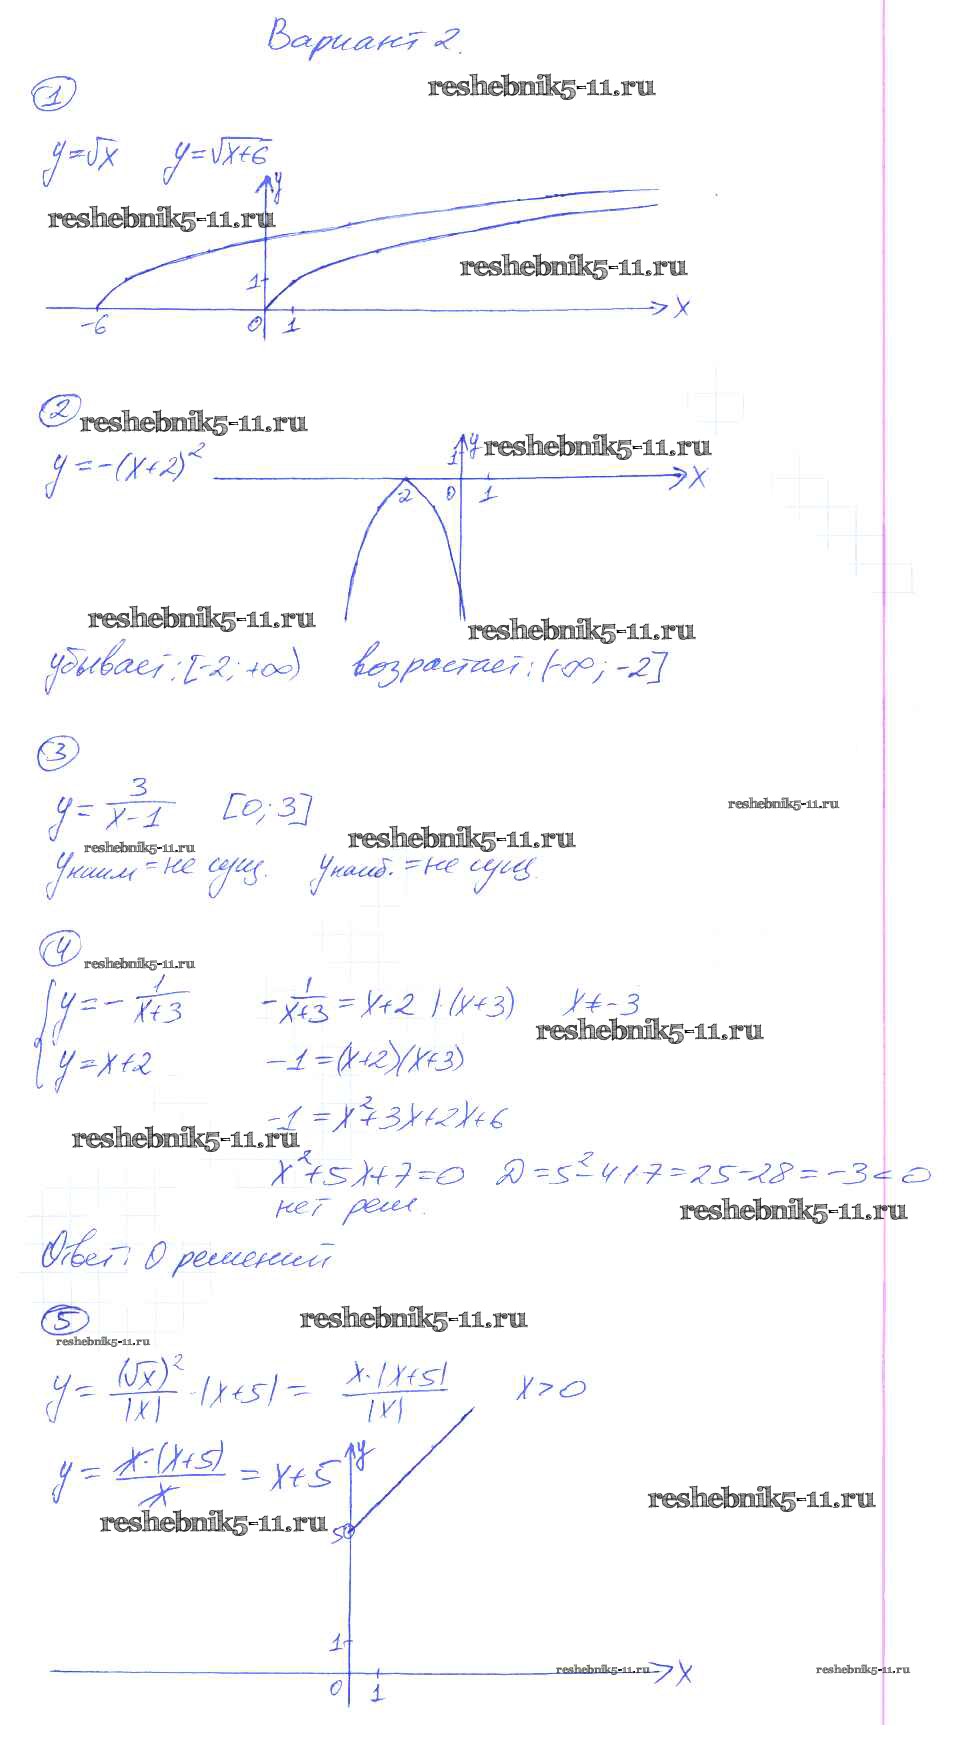 Вариант 2.
reshebnik5-11.ru
1
y=√x y=√x+6
y
reshebnik5-11.ru
reshebnik5-11.ru
1
-6 0 1 x
2
reshebnik5-11.ru
y=-(x+2)²
1 y reshebnik5-11.ru
-2 0 1 x
reshebnik5-11.ru
reshebnik5-11.ru
убывает: [-2; +∞) возрастает: (-∞; -2]
3
y = 3/(x-1) [0; 3]
reshebnik5-11.ru
reshebnik5-11.ru
reshebnik5-11.ru
yнаим = не сущ. yнаиб. = не сущ.
4
reshebnik5-11.ru
{ y = - 1/(x+3) - 1/(x+3) = x+2 |·(x+3) x≠-3
reshebnik5-11.ru
y = x+2 -1 = (x+2)(x+3)
-1 = x²+3x+2x+6
reshebnik5-11.ru
x²+5x+7=0 D = 5²-4·1·7=25-28=-3<0
нет реш.
reshebnik5-11.ru
Ответ: 0 решений
5
reshebnik5-11.ru
reshebnik5-11.ru
y = (√x)²/|x| · |x+5| = x·|x+5|/|x| x>0
y = x·(x+5)/x = x+5
y
reshebnik5-11.ru
reshebnik5-11.ru
5
1
reshebnik5-11.ru
reshebnik5-11.ru
0 1 x